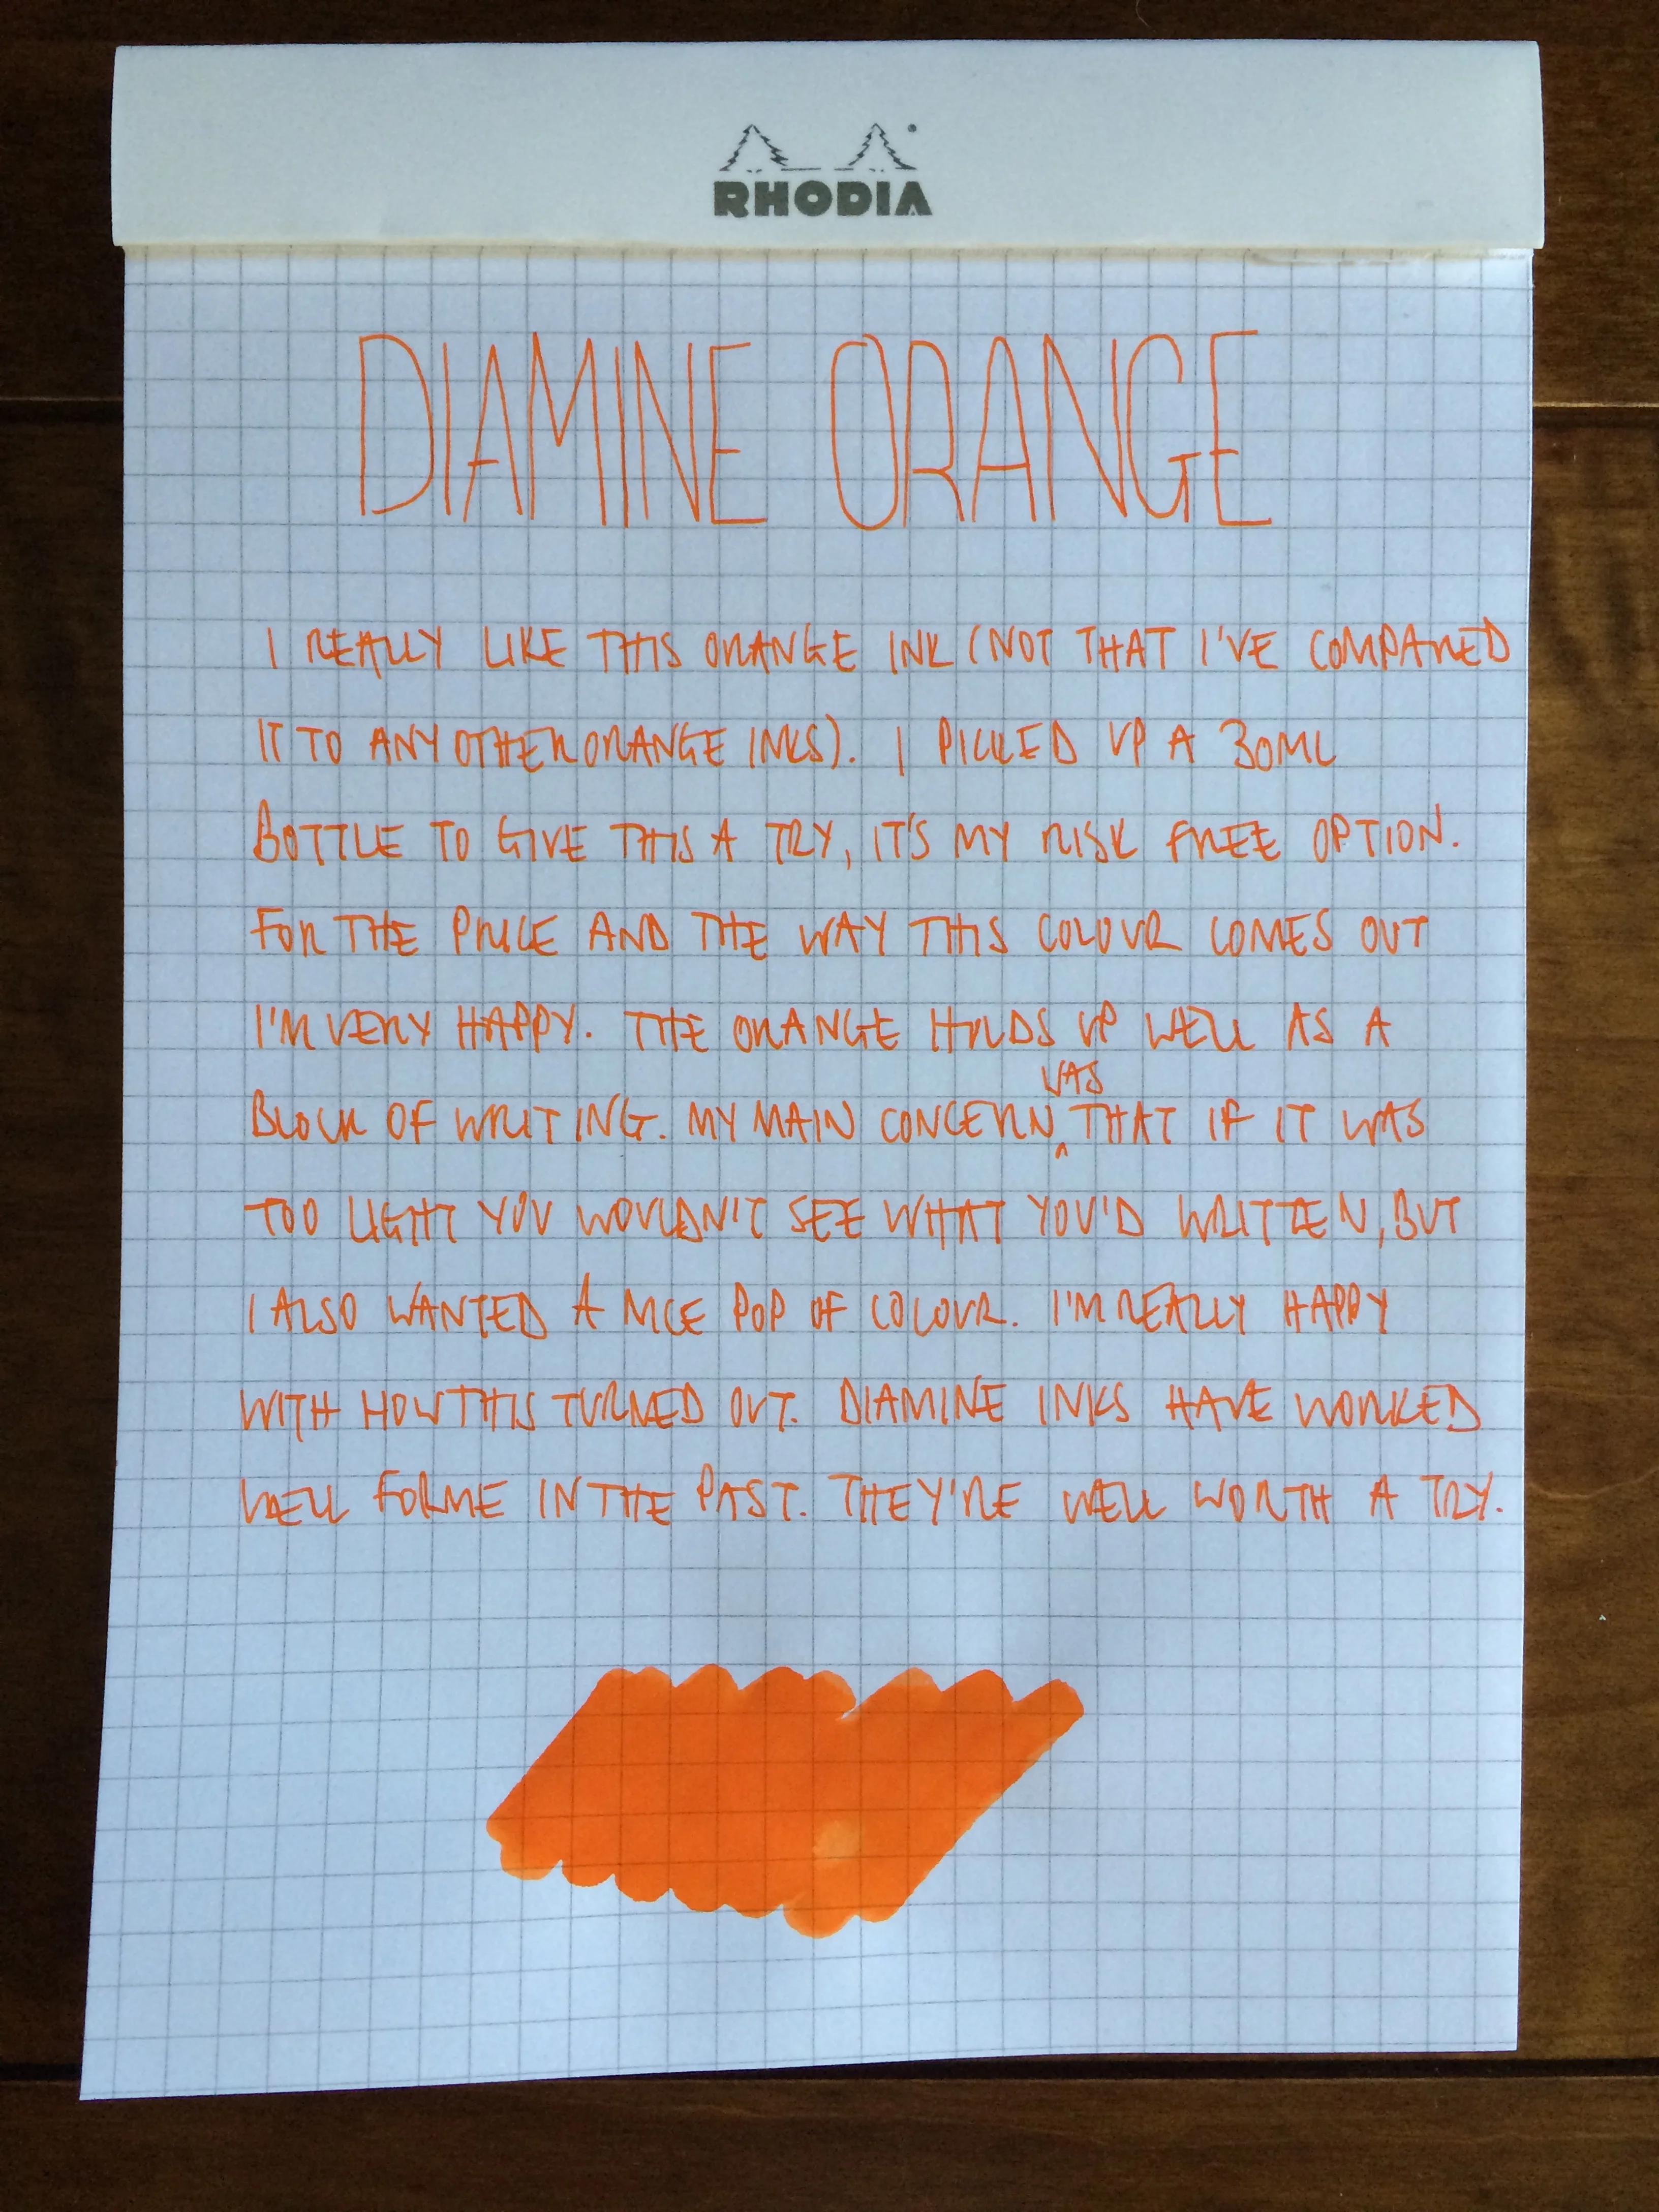 RHODIA
DIAMINE ORANGE
I REALLY LIKE THIS ORANGE INK (NOT THAT I'VE COMPARED
IT TO ANY OTHER ORANGE INKS). I PICKED UP A 30ML
BOTTLE TO GIVE THIS A TRY, IT'S MY RISK FREE OPTION.
FOR THE PRICE AND THE WAY THIS COLOUR COMES OUT
I'M VERY HAPPY. THE ORANGE HOLDS UP WELL AS A
BLOCK OF WRITING. MY MAIN CONCERN WAS THAT IF IT WAS
TOO LIGHT YOU WOULDN'T SEE WHAT YOU'D WRITTEN, BUT
I ALSO WANTED A NICE POP OF COLOUR. I'M REALLY HAPPY
WITH HOW THIS TURNED OUT. DIAMINE INKS HAVE WORKED
WELL FOR ME IN THE PAST. THEY'RE WELL WORTH A TRY.